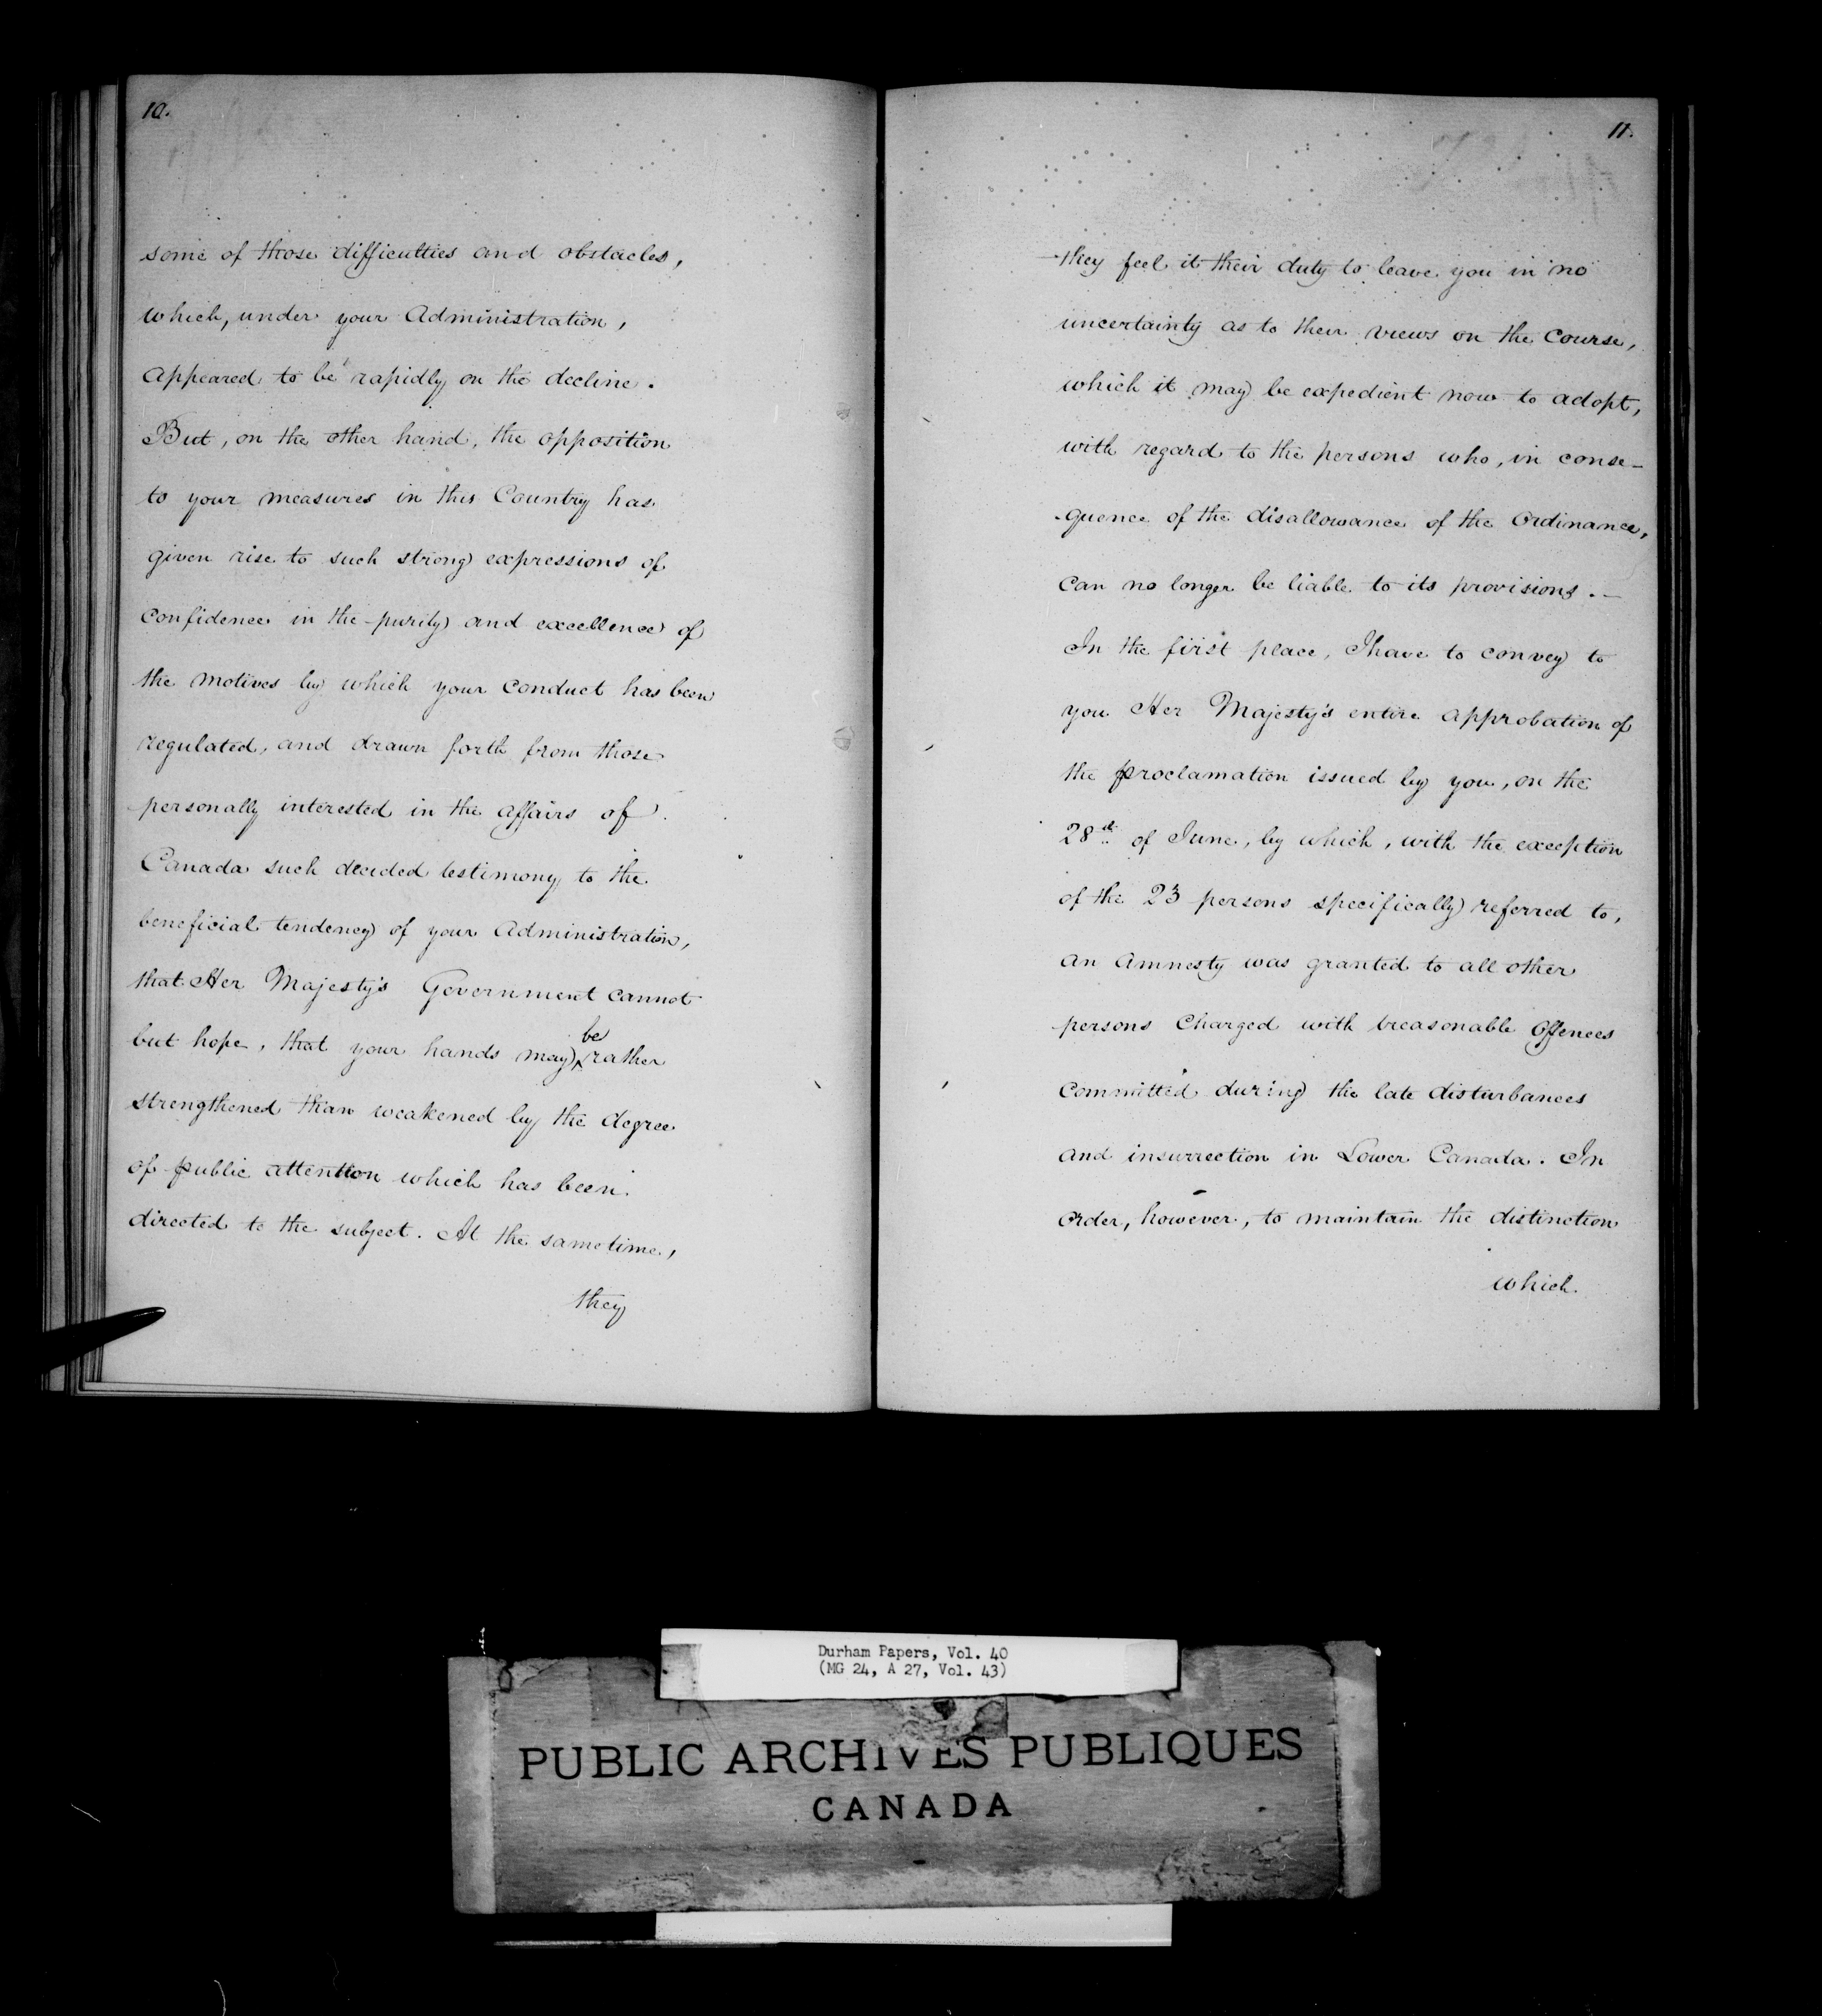 10.
some of those difficulties and obstacles,
which, under your Administration,
appeared to be rapidly on the decline.
But, on the other hand, the opposition
to your measures in this Country has
given rise to such strong expressions of
confidence in the purity and excellence of
the motives by which your conduct has been
regulated, and drawn forth from those
personally interested in the affairs of
Canada such decided testimony to the
beneficial tendency of your Administration,
that Her Majesty's Government cannot
but hope, that your hands may be rather
strengthened than weakened by the degree
of public attention which has been
directed to the subject. At the same time,
they
11.
they feel it their duty to leave you in no
uncertainty as to their views on the course,
which it may be expedient now to adopt,
with regard to the persons who, in conse-
-quence of the disallowance of the Ordinance,
can no longer be liable to its provisions. -
In the first place, I have to convey to
you Her Majesty's entire approbation of
the proclamation issued by you, on the
28th of June, by which, with the exception
of the 23 persons specifically referred to,
an amnesty was granted to all other
persons charged with treasonable Offences
committed during the late disturbances
and insurrection in Lower Canada. In
order, however, to maintain the distinction
which
Durham Papers, Vol. 40
(MG 24, A 27, Vol. 43)
PUBLIC ARCHIVES PUBLIQUES
CANADA